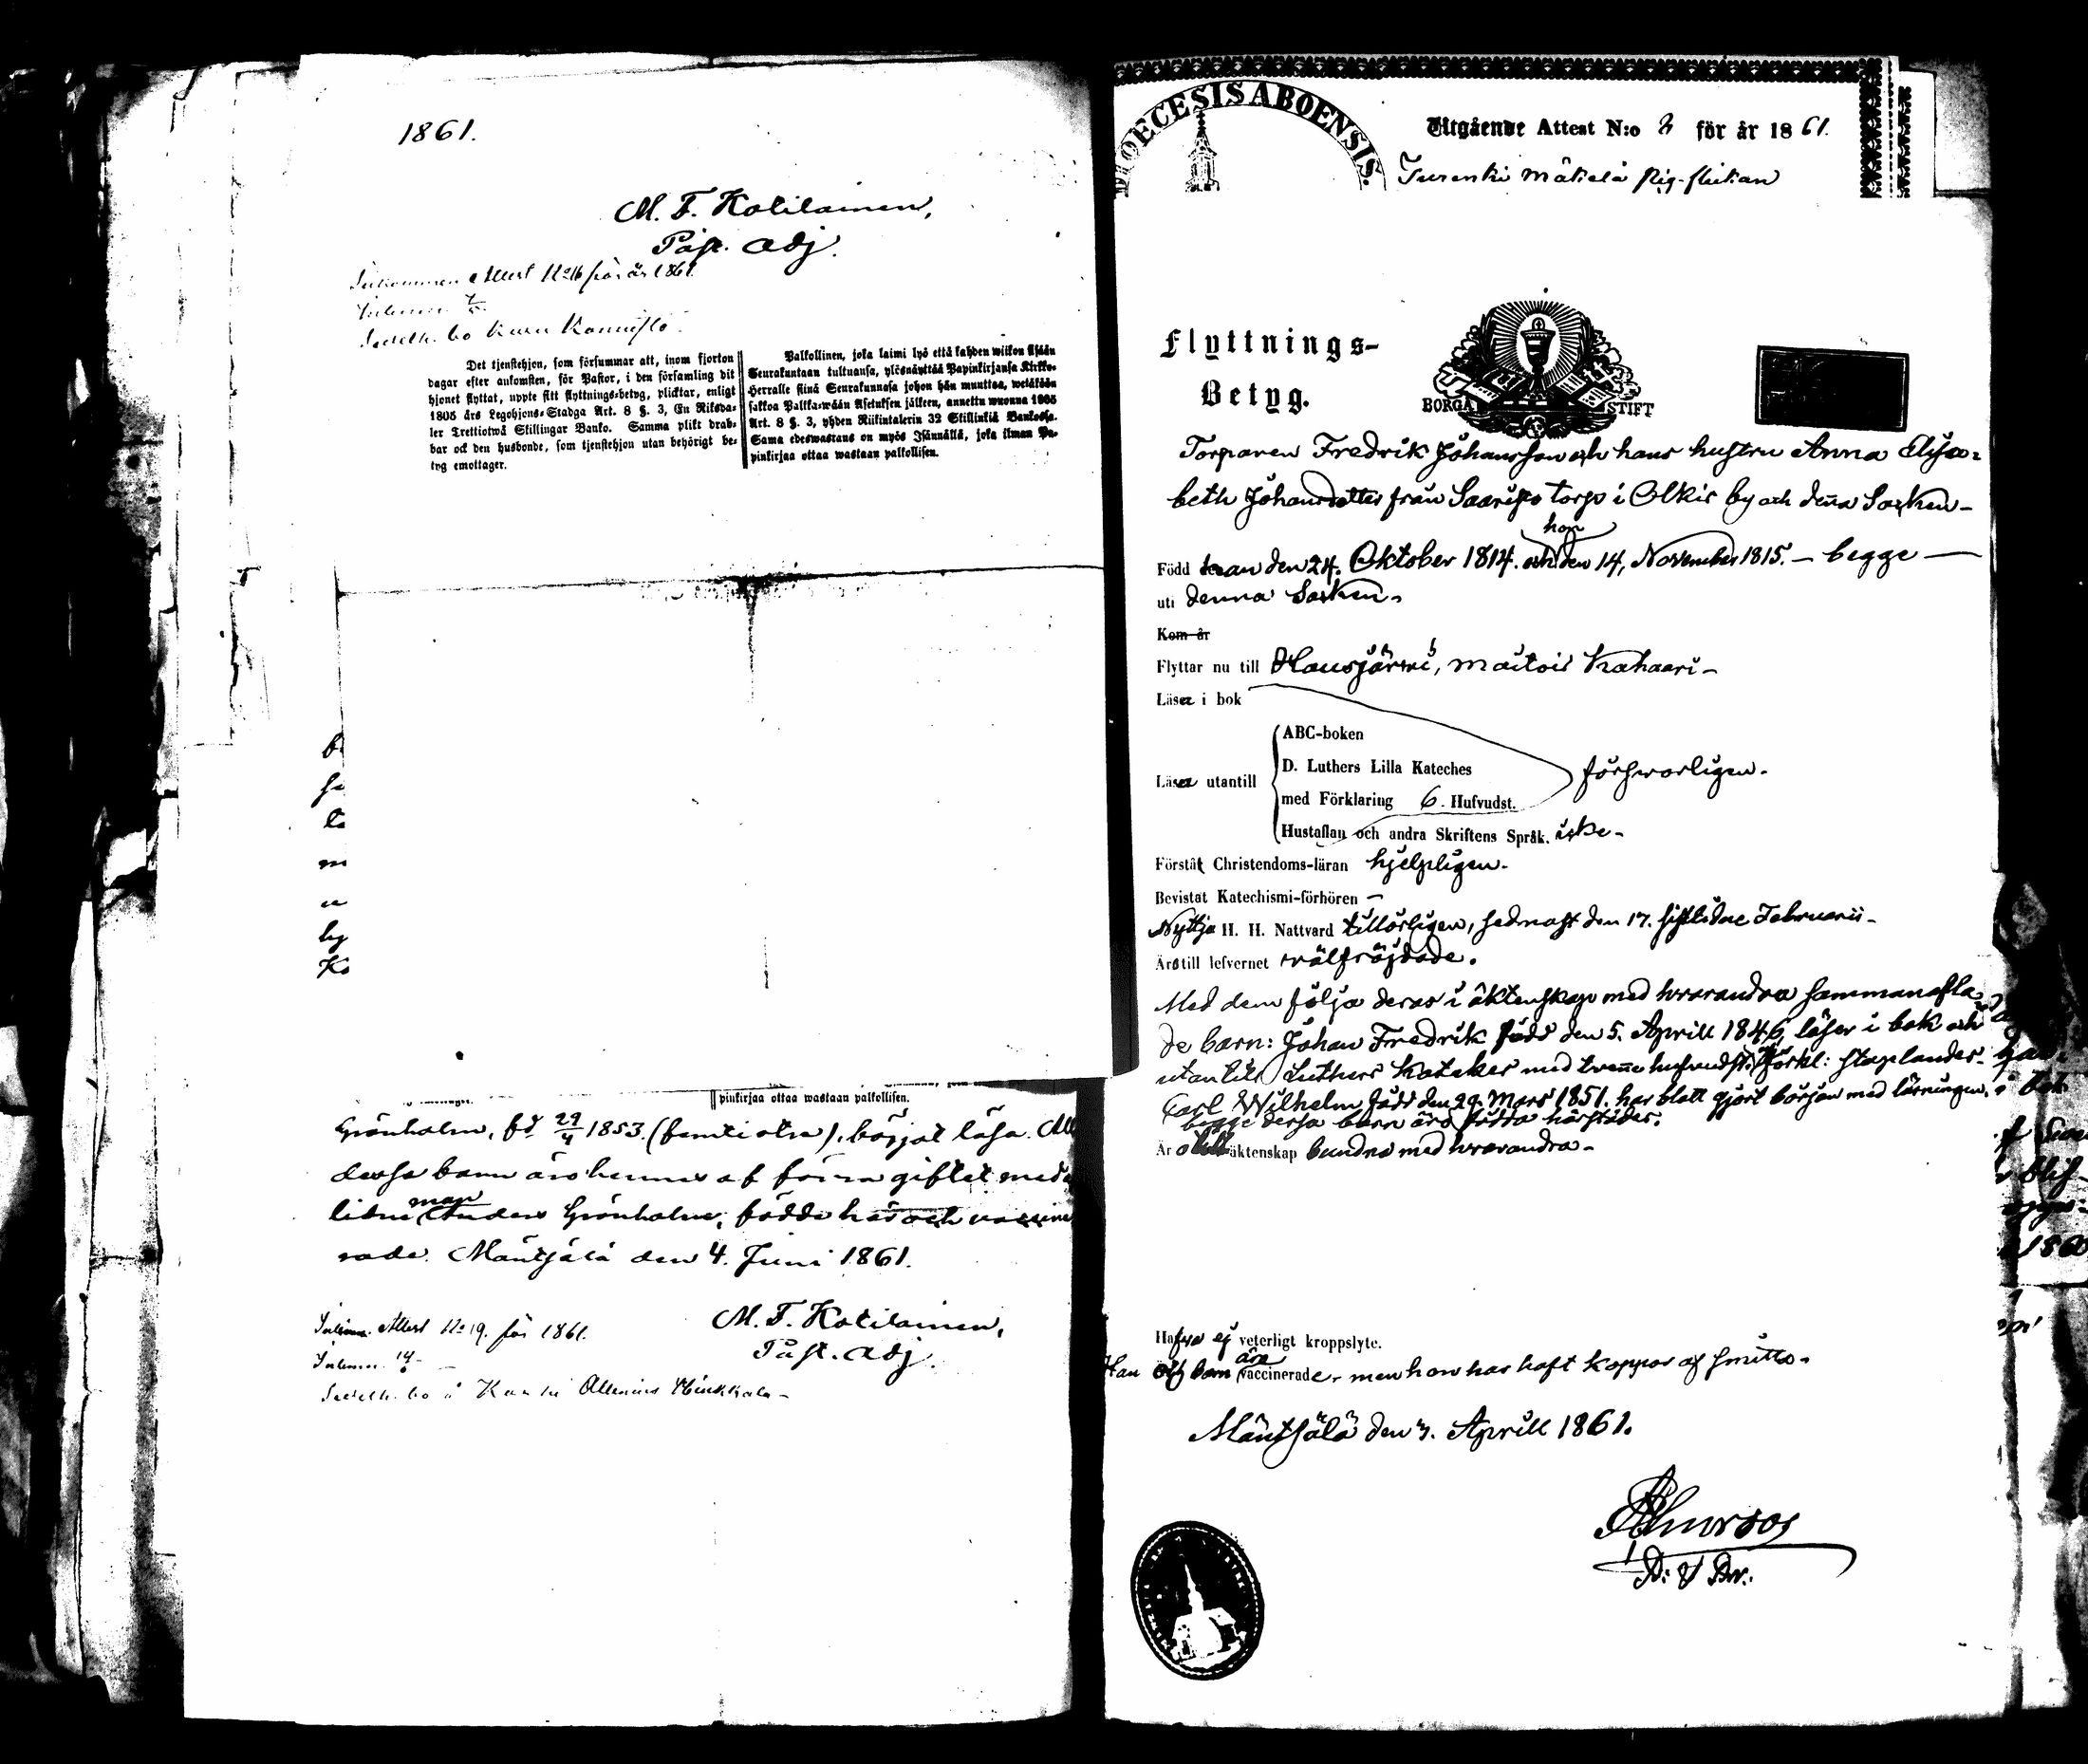 1861.
M. F. Kotilainen,
Past. adj.
Inkommen Attest No 16 för år 1861.
Det tjenstehjon, som försummar att, inom fjorton
dagar efter ankomsten, för Pastor, i den församling dit
hjonet flyttat, uppte sitt flyttnings-betyg, plicktar, enligt
1805 års Legohjons-Stadga Art. 8 §. 3, En Riksda-
ler Trettiotwå Skillingar Banko. Samma plikt drab-
bar ock den husbonde, som tjenstehjon utan behörigt be-
tyg emottager.
Palkollinen, joka laimi lyö että kahden wiikon sisään
Seurakuntaan tultuansa, ylösnäyttää Papinkirjansa Kirkko-
Herralle siinä Seurakunnasa johon hän muuttaa, wetäkään
sakkoa Palkka-wään Asetuksen jälkeen, annettu wuonna 1805
Art. 8 §. 3, yhden Riikintalerin 32 Skillinkiä Bankossa.
Sama edeswastaus on myös Isännällä, joka ilman Pa-
pinkirjaa ottaa wastaan palkollisen.
pinkirjaa ottaa wastaan palkollisen.
Grönholm, fd 29/4 1853. börjat läsa.
dessa barn äro hennes af förra giftet med
lidne man Anders Grönholm, födde här och vaccine
rade. Mäntsälä den 4. Juni 1861.
M. F. Kotilainen,
Past. adj.
Inkom. Attest No 19. för 1861.
DIOECESIS ABOENSIS.
Utgående Attest N:o 2 för år 1861.
Turenki Mäkelä pig-flickan
Flyttnings-
Betyg.
BORGÅ STIFT
Torparen Fredrik Johansson och hans hustru Anna Elisa-
beth Johansdotter från Saaristo torp i Olkis by och denna Socken-
Född han den 24. Oktober 1814. och hon den 14, November 1815. - begge -
uti denna Socken.
Kom år
Flyttar nu till Hausjärwi, Maitois Kahaari-
Läsa i bok
Läsa utantill
ABC-boken
D. Luthers Lilla Kateches
med Förklaring 6. Hufvudst.
försvarligen.
Hustaflan och andra Skriftens Språk. icke-
Förstå Christendoms-läran hjelpligen.
Bevistat Katechismi-förhören -
Nyttja H. H. Nattvard tillörligen, sednast den 17. sistlidne Februarii-
Äro till lefvernet wälfräjdade.
Med dem följa deras i äktenskap med hvarandra sammanafla-
de barn: Johan Fredrik född den 5. Aprill 1846, läser i bok och
utantill Luthers Kateches med twenne hufvudst. förkl: staplandes-
Carl Wilhelm född den 29. Mars 1851. har blott gjort början med läsningen.
begge dessa barn äro födda härstädes.
Är o äktenskap bundna med hvarandra-
Hafva ej veterligt kroppslyte.
Han och barn äro vaccinerade- men hon har haft koppor af smitto.
Mäntsälä den 3. Aprill 1861.